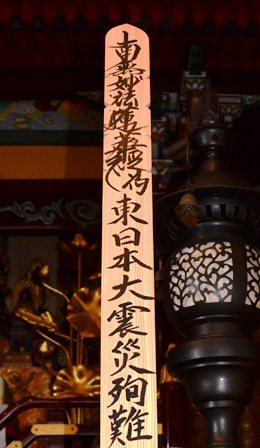 南無妙法蓮華経 為東日本大震災殉難